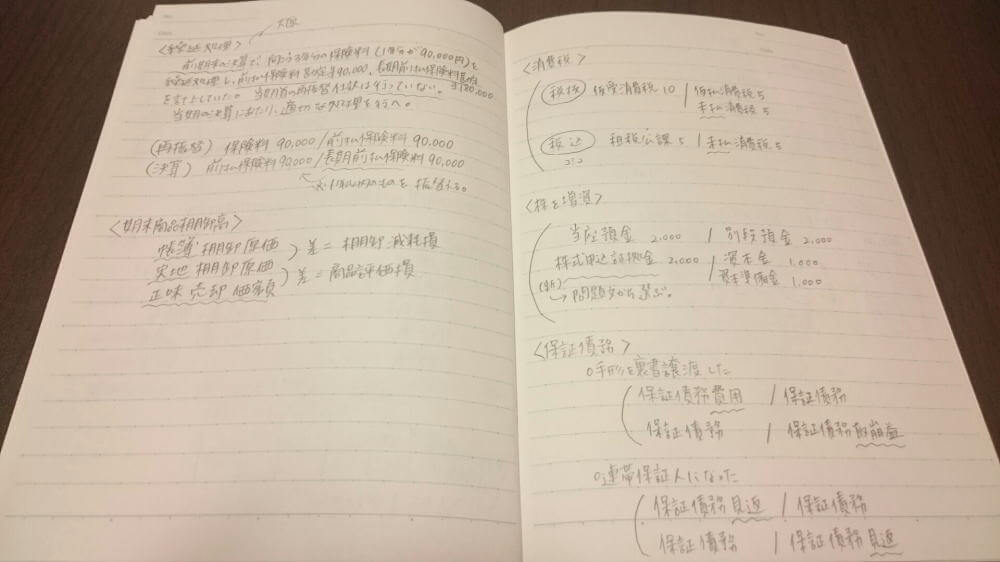 <経過処理>
前期末の決算で、向こう3年分の保険料(1年分が90,000円)を
経過処理し、前払保険料勘定¥90,000、長期前払保険料勘定
¥180,000
を計上していた。当期首の再振替仕訳は行っていない。
当期の決算にあたり、適切な処理を行へ。
(再振替) 保険料 90,000 / 前払保険料 90,000
(決算) 前払保険料 90,000 / 長期前払保険料 90,000
※1年以内のものを振替える。
<期末商品棚卸高>
帳簿棚卸原価
実地棚卸原価
正味売却価額
差=棚卸減耗損
差=商品評価損
<消費税>
税抜 仮受消費税 10 / 仮払消費税 5
未払消費税 5
税込 租税公課 5 / 未払消費税 5
<株を増資>
当座預金 2,000 / 別段預金 2,000
株式申込証拠金 2,000 / 資本金 1,000
資本準備金 1,000
→問題文から選ぶ。
<保証債務>
○手形を裏書譲渡した
保証債務費用 / 保証債務
保証債務 / 保証債務取崩益
○連帯保証人になった
保証債務見返 / 保証債務
保証債務 / 保証債務見返